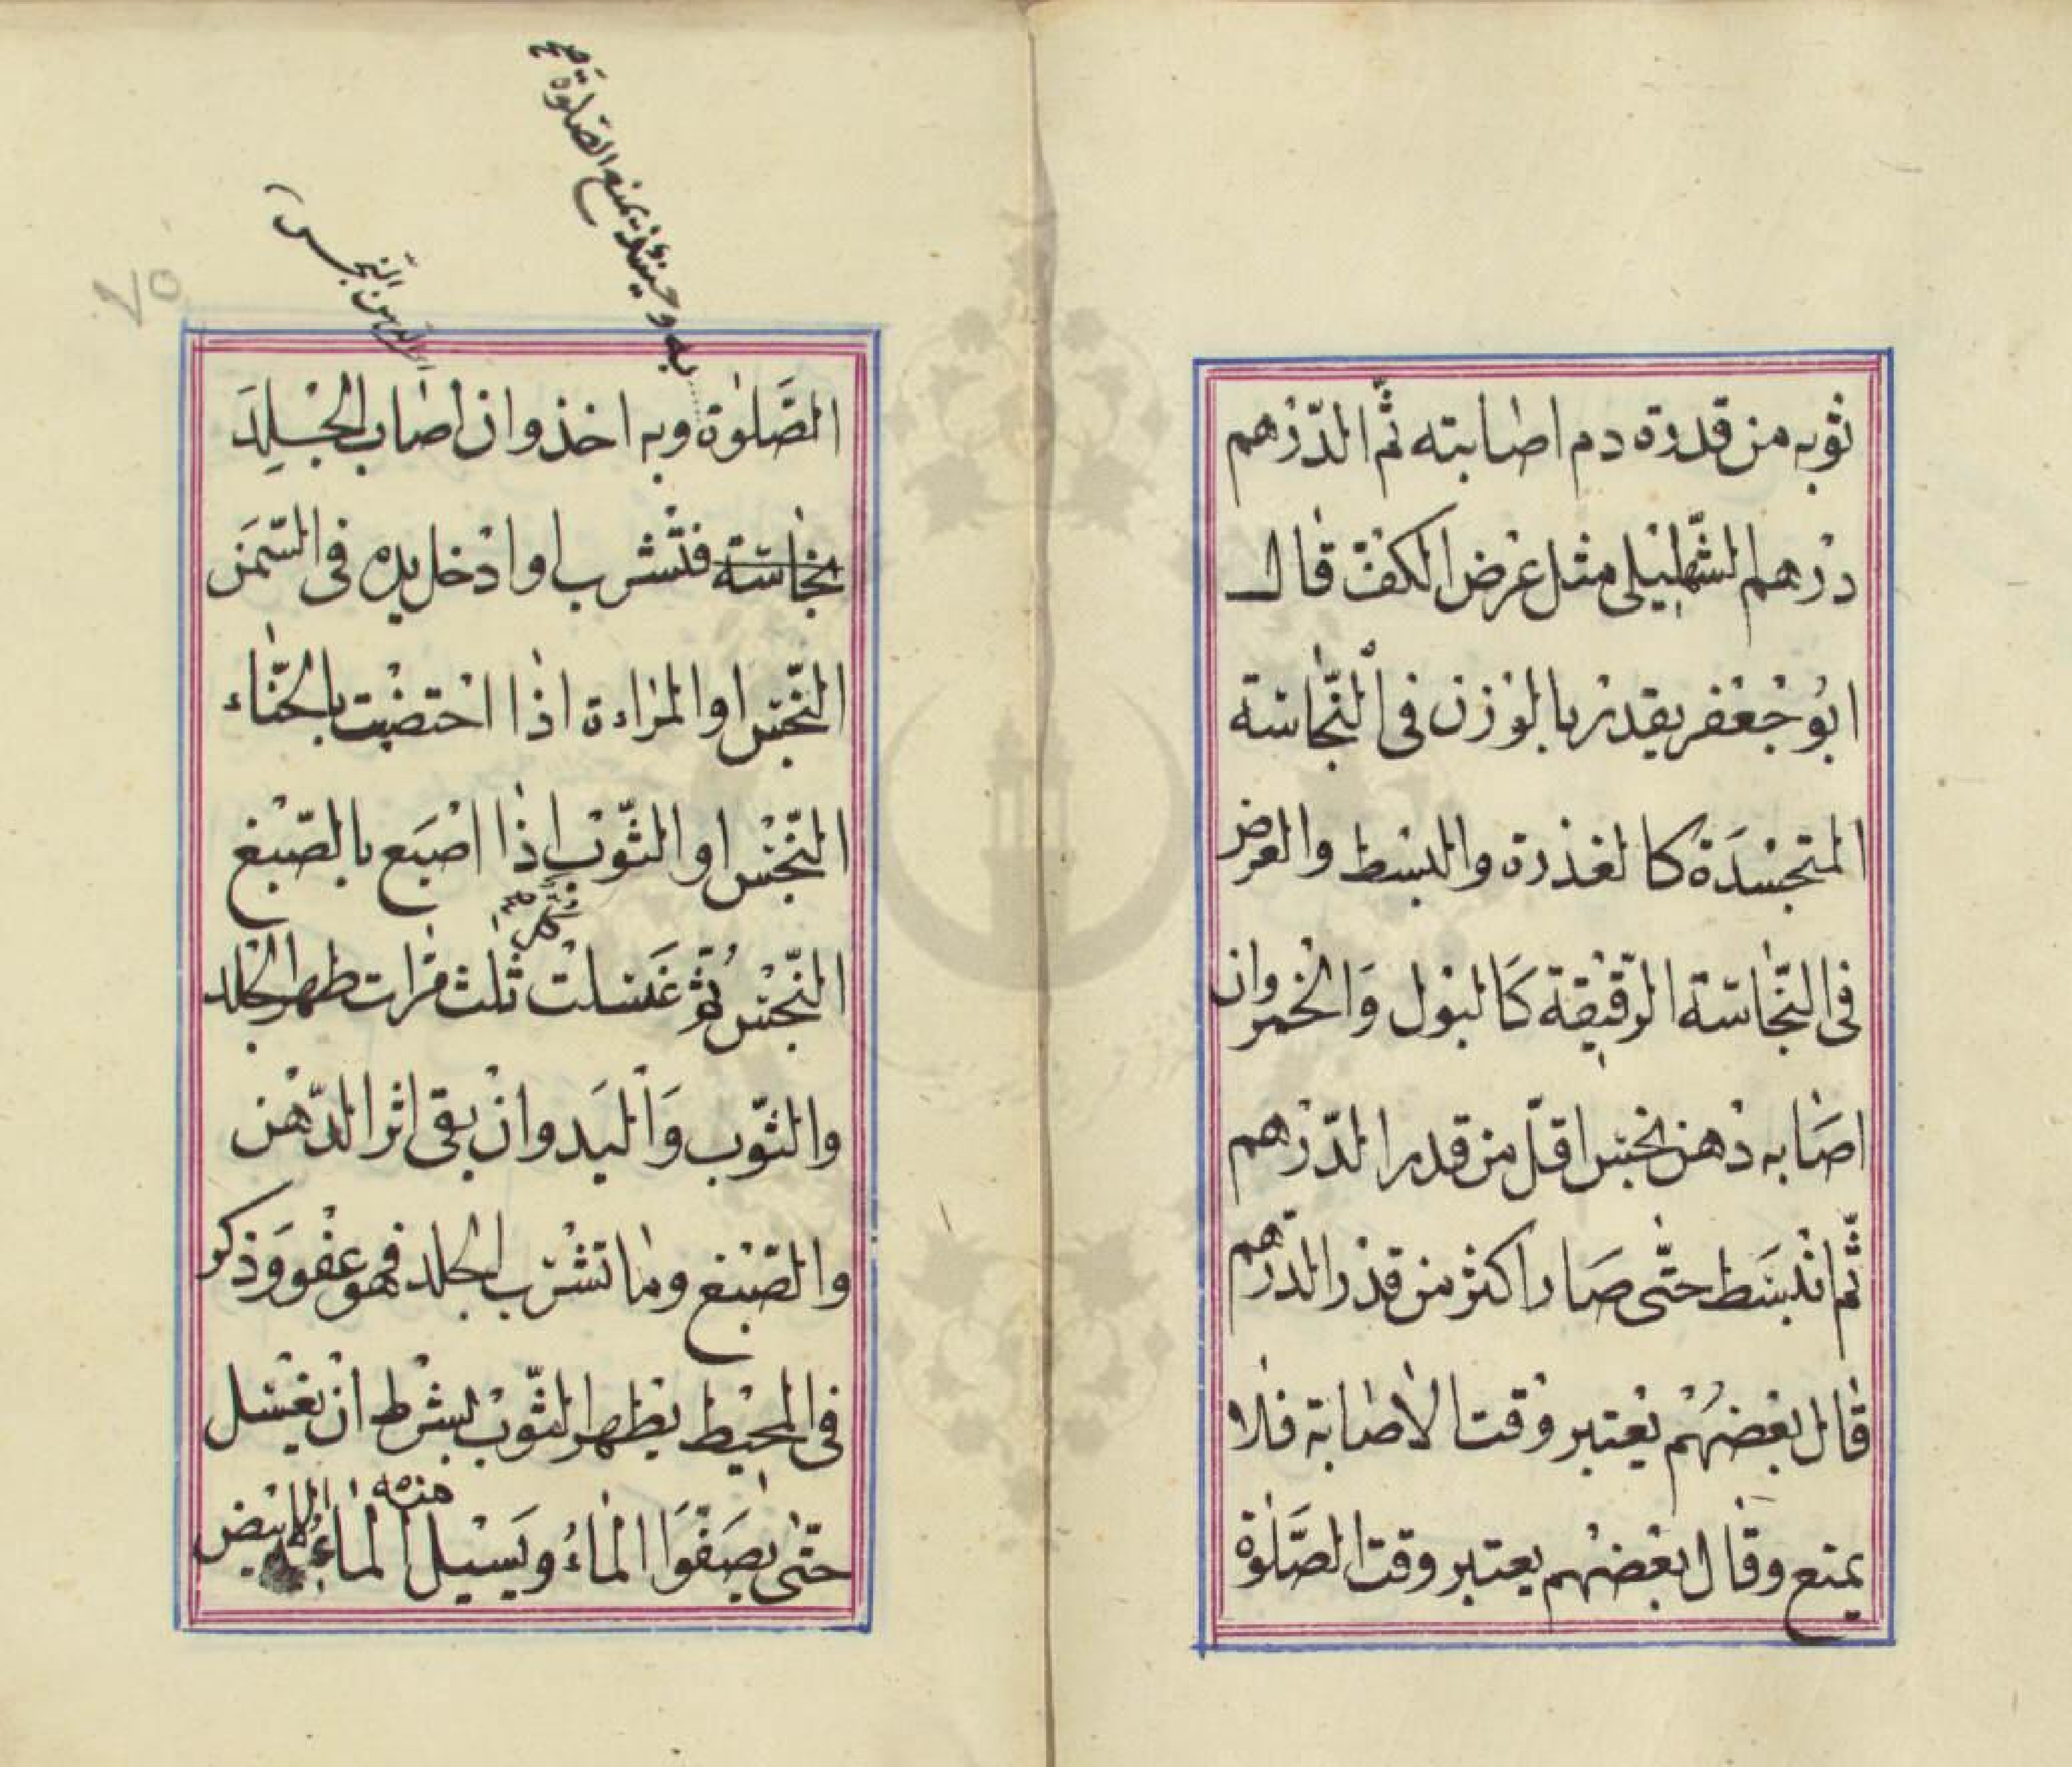 ثوبه من قدرة دم اصابته ثم الدرهم
درهم الشهليلى مثل عرض الكف قال
ابو جعفر يقدر بالوزن فى النجاسة
المتجسدة كالعذرة والبسط والعرض
فى النجاسة الرقيقة كالبول والخمر وان
اصابه دهن نجس اقل من قدر الدرهم
ثم انبسط حتى صار اكثر من قدر الدرهم
قال بعضهم يعتبر وقت الاصابة فلا
يمنع وقال بعضهم يعتبر وقت الصلوة
به وحينئذ يمنع الصلوة صح
من النجس
٧٥
الصلوة وبه اخذ وان اصاب الجلد
نجاسة فتشرب او ادخل يده فى السمن
النجس او المراءة اذا اختضبت بالحناء
النجس او الثوب اذا اصبع بالصبغ
النجس ثم غسلت ثلث مرات طهر الجلد
والثوب واليد وان بقى اثر الدهن
والصبغ وما تشرب الجلد فهو عفو وذكر
فى المحيط يطهر الثوب بشرط ان يغسل
حتى يصفوا الماء ويسيل منه الماء الابيض